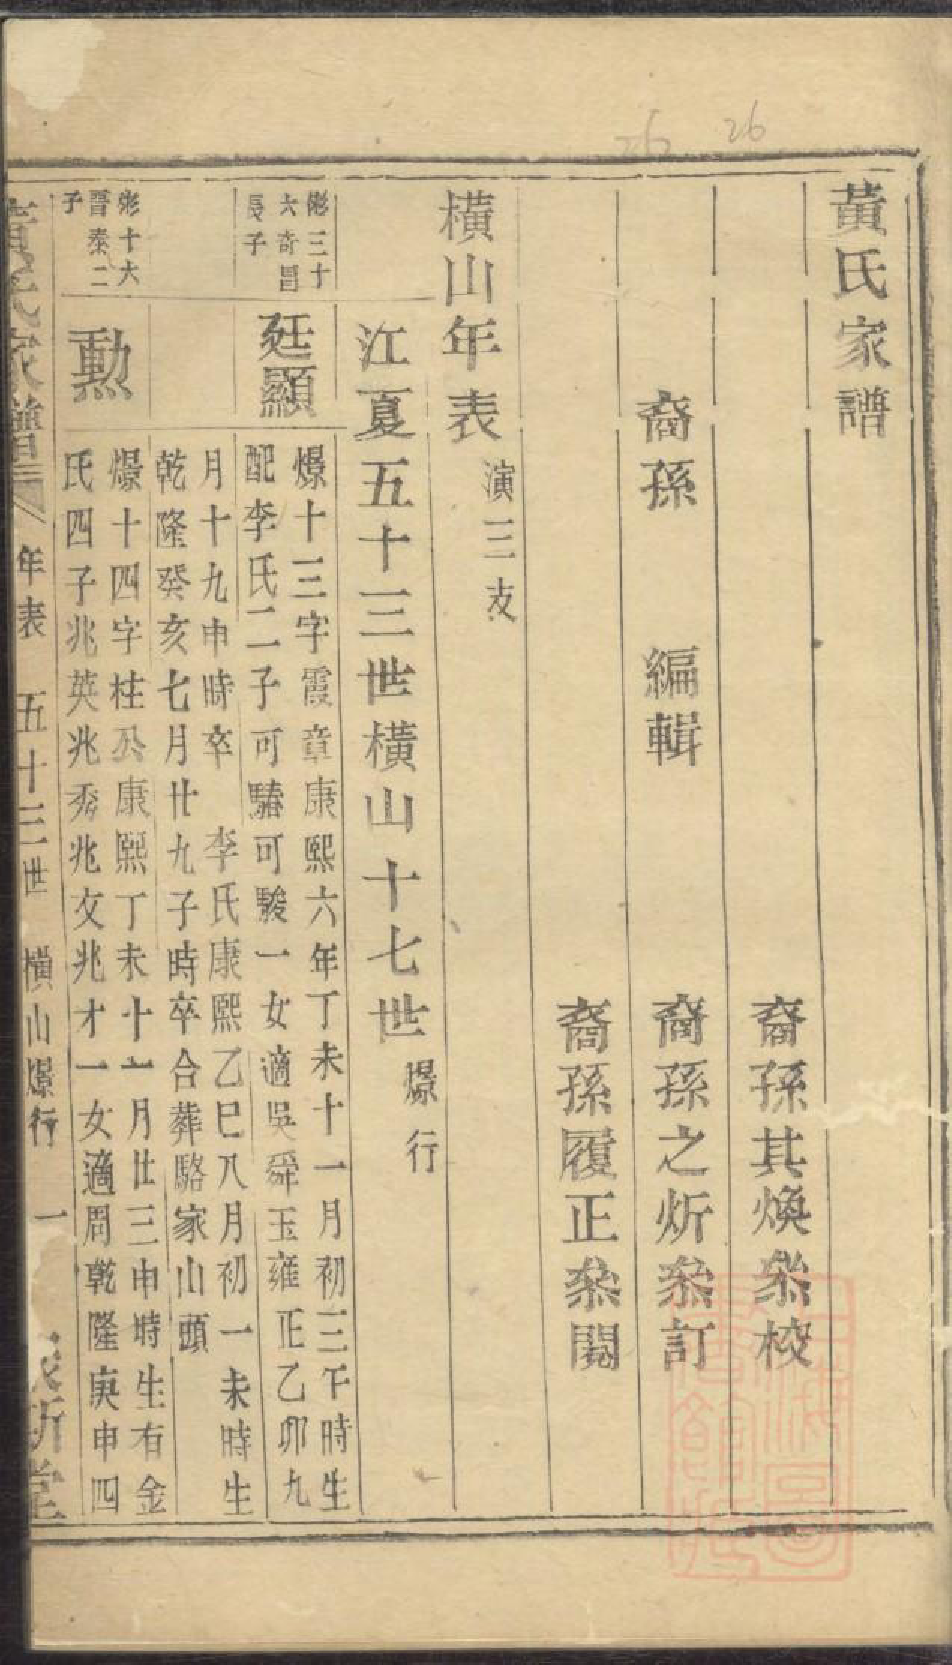 黃氏家譜
裔孫其煥叅校
裔孫　編輯　裔孫之炘叅訂
裔孫履正叅閱
橫山年表 演三支
江夏五十三世橫山十七世 㷡行
彬三十
六奇昌
長子
廷顯
㷡十三字霞章康熙六年丁未十一月初三午時生
配李氏二子可𩦠可駿一女適吳舜玉雍正乙卯九
月十九申時卒　李氏康熙乙巳八月初一未時生
乾隆癸亥七月廿九子時卒合葬駱家山頭
彬十六
晉泰二
子
勲
㷡十四字桂公康熙丁未十一月廿三申時生有金
氏四子兆英兆秀兆文兆才一女適周乾隆庚申四
黃氏家譜　年表　五十三世　橫山㷡行　一